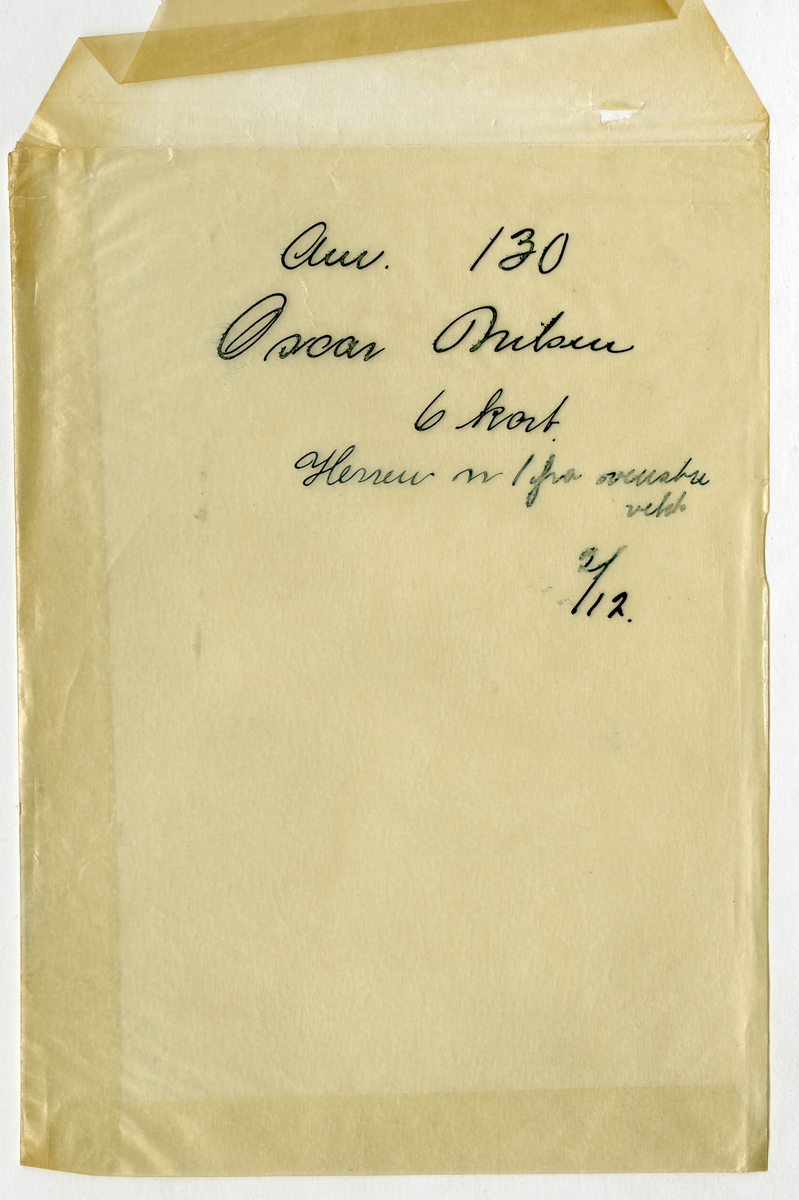 Am. 130
Oscar Nilsen
6 kort.
Herren nr 1 fra venstre
vekk
2/12.